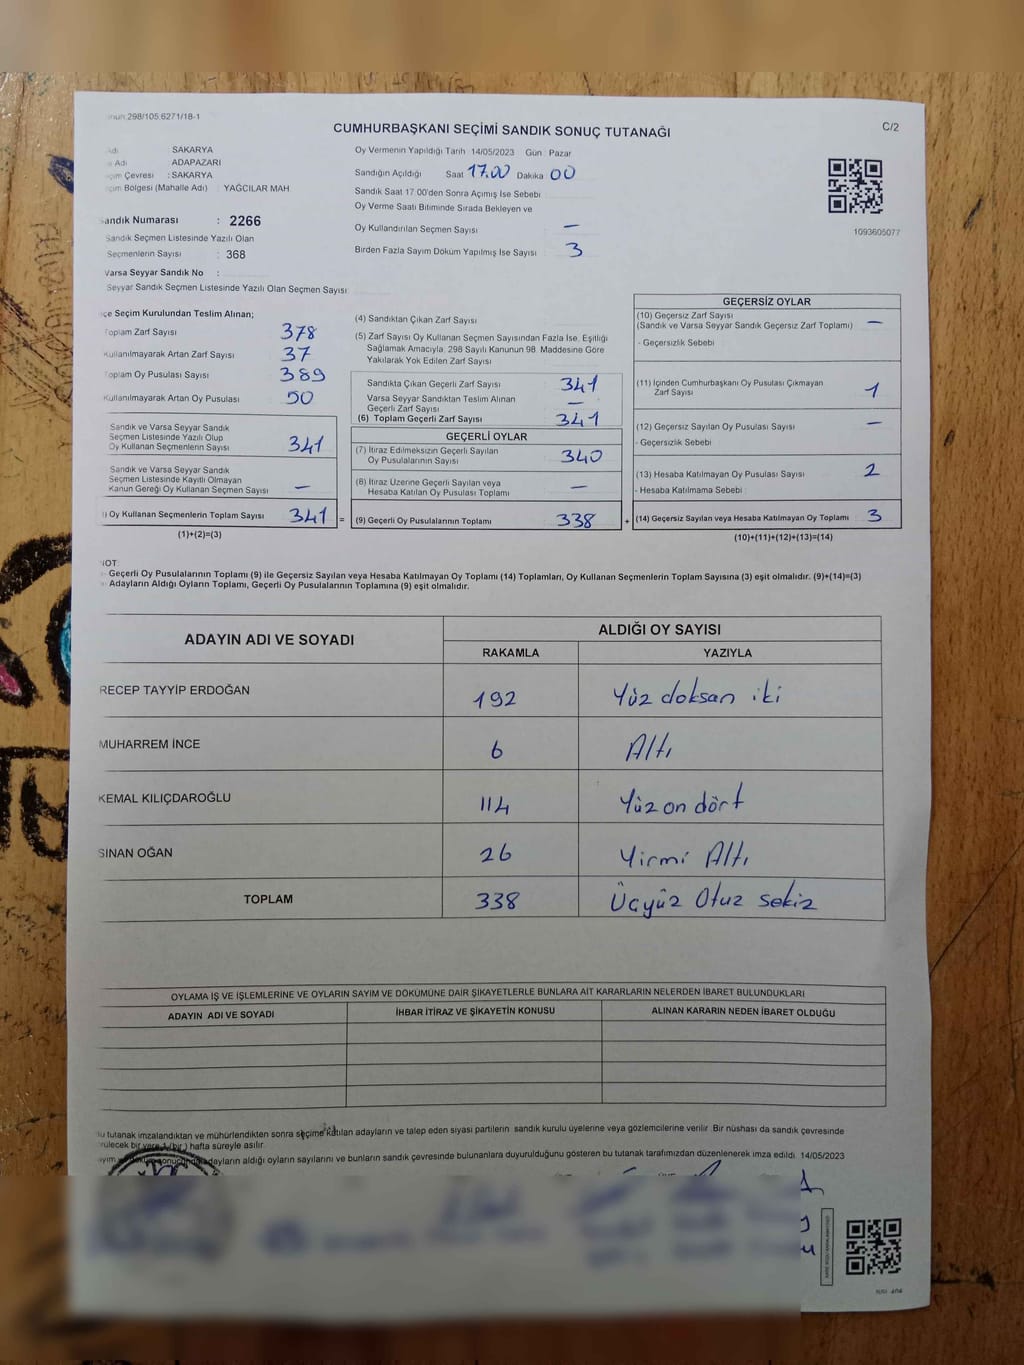 298/105.6271/18-1
C/2
CUMHURBAŞKANI SEÇİMİ SANDIK SONUÇ TUTANAĞI
SAKARYA
Adı ADAPAZARI
Çevresi : SAKARYA
Bölgesi (Mahalle Adı) : YAĞCILAR MAH
Sandık Numarası : 2266
Sandık Seçmen Listesinde Yazılı Olan
Seçmenlerin Sayısı : 368
Varsa Seyyar Sandık No :
Seyyar Sandık Seçmen Listesinde Yazılı Olan Seçmen Sayısı
Oy Vermenin Yapıldığı Tarih 14/05/2023 Gün : Pazar
Sandığın Açıldığı Saat 17.00 Dakika 00
Sandık Saat 17 00'den Sonra Açımış İse Sebebi
Oy Verme Saati Bitiminde Sırada Bekleyen ve
Oy Kullandırılan Seçmen Sayısı —
Birden Fazla Sayım Döküm Yapılmış İse Sayısı 3
1093605077
Seçim Kurulundan Teslim Alınan;
Toplam Zarf Sayısı 378
Kullanılmayarak Artan Zarf Sayısı 37
Toplam Oy Pusulası Sayısı 389
Kullanılmayarak Artan Oy Pusulası 50
Sandık ve Varsa Seyyar Sandık
Seçmen Listesinde Yazılı Olup
Oy Kullanan Seçmenlerin Sayısı 341
Sandık ve Varsa Seyyar Sandık
Seçmen Listesinde Kayıtlı Olmayan
Kanun Gereği Oy Kullanan Seçmen Sayısı —
Oy Kullanan Seçmenlerin Toplam Sayısı 341 =
(1)+(2)=(3)
(4) Sandıktan Çıkan Zarf Sayısı
(5) Zarf Sayısı Oy Kullanan Seçmen Sayısından Fazla İse, Eşitliği
Sağlamak Amacıyla, 298 Sayılı Kanunun 98. Maddesine Göre
Yakılarak Yok Edilen Zarf Sayısı
Sandıkta Çıkan Geçerli Zarf Sayısı 341
Varsa Seyyar Sandıktan Teslim Alınan
Geçerli Zarf Sayısı —
(6) Toplam Geçerli Zarf Sayısı 341
GEÇERLİ OYLAR
(7) İtiraz Edilmeksizin Geçerli Sayılan
Oy Pusulalarının Sayısı 340
(8) İtiraz Üzerine Geçerli Sayılan veya
Hesaba Katılan Oy Pusulası Toplamı —
(9) Geçerli Oy Pusulalarının Toplamı 338 +
GEÇERSİZ OYLAR
(10) Geçersiz Zarf Sayısı
(Sandık ve Varsa Seyyar Sandık Geçersiz Zarf Toplamı) —
- Geçersizlik Sebebi
(11) İçinden Cumhurbaşkanı Oy Pusulası Çıkmayan
Zarf Sayısı 1
(12) Geçersiz Sayılan Oy Pusulası Sayısı —
- Geçersizlik Sebebi
(13) Hesaba Katılmayan Oy Pusulası Sayısı 2
- Hesaba Katılmama Sebebi
(14) Geçersiz Sayılan veya Hesaba Katılmayan Oy Toplamı 3
(10)+(11)+(12)+(13)=(14)
NOT:
Geçerli Oy Pusulalarının Toplamı (9) ile Geçersiz Sayılan veya Hesaba Katılmayan Oy Toplamı (14) Toplamları, Oy Kullanan Seçmenlerin Toplam Sayısına (3) eşit olmalıdır. (9)+(14)=(3)
Adayların Aldığı Oyların Toplamı, Geçerli Oy Pusulalarının Toplamına (9) eşit olmalıdır.
ADAYIN ADI VE SOYADI ALDIĞI OY SAYISI
RAKAMLA YAZIYLA
RECEP TAYYİP ERDOĞAN 192 Yüz doksan iki
MUHARREM İNCE 6 Altı
KEMAL KILIÇDAROĞLU 114 Yüz on dört
SİNAN OĞAN 26 Yirmi Altı
TOPLAM 338 Üçyüz Otuz sekiz
OYLAMA İŞ VE İŞLEMLERİNE VE OYLARIN SAYIM VE DÖKÜMÜNE DAİR ŞİKAYETLERLE BUNLARA AİT KARARLARIN NELERDEN İBARET BULUNDUKLARI
ADAYIN ADI VE SOYADI İHBAR İTİRAZ VE ŞİKAYETİN KONUSU ALINAN KARARIN NEDEN İBARET OLDUĞU
tutanak imzalandıktan ve mühürlendikten sonra seçime katılan adayların ve talep eden siyasi partilerin sandık kurulu üyelerine veya gözlemcilerine verilir. Bir nüshası da sandık çevresinde
bir yere 1 (bir) hafta süreyle asılır.
adayların aldığı oyların sayılarını ve bunların sandık çevresinde bulunanlara duyurulduğunu gösteren bu tutanak tarafımızdan düzenlenerek imza edildi. 14/05/2023